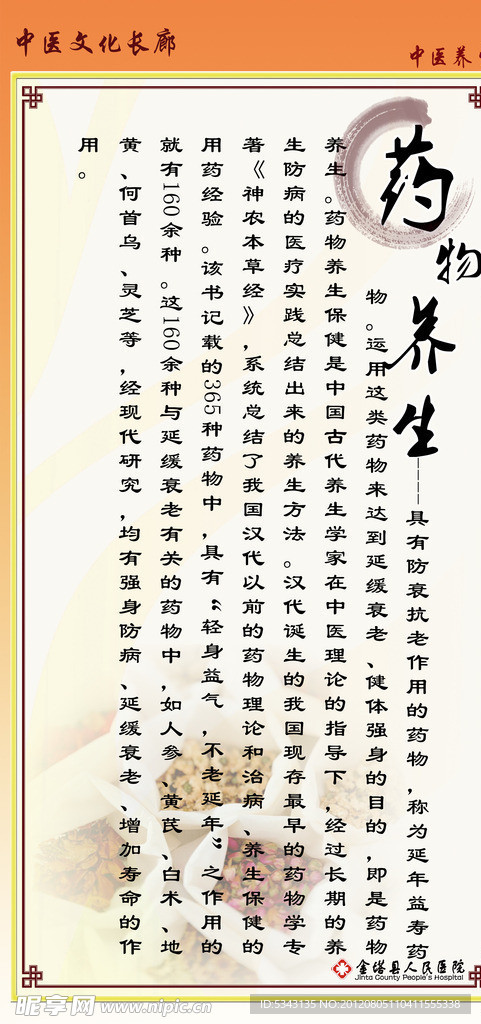 中医文化长廊
中医养
药物养生
----具有防衰抗老作用的药物,称为延年益寿药
物。运用这类药物来达到延缓衰老、健体强身的目的,即是药物
养生。药物养生保健是中国古代养生学家在中医理论的指导下,经过长期的养
生防病的医疗实践总结出来的养生方法。汉代诞生的我国现存最早的药物学专
著《神农本草经》,系统总结了我国汉代以前的药物理论和治病、养生保健的
用药经验。该书记载的365种药物中,具有“轻身益气,不老延年”之作用的
就有160余种。这160余种与延缓衰老有关的药物中,如人参、黄芪、白术、地
黄、何首乌、灵芝等,经现代研究,均有强身防病、延缓衰老、增加寿命的作
用。
金塔县人民医院
Jinta County People's Hospital
昵享网 www.nipic.cn
ID:5343135 NO:20120805110411555338